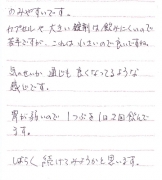 のみやすいです。
カプセルや大きい錠剤は飲みにくいので
苦手ですが、これは小さいので良いですね。
気のせいか通じも良くなってるような
感じです。
胃が弱いので1つぶを1日2回飲んで
ます。
しばらく続けてみようかと思います。